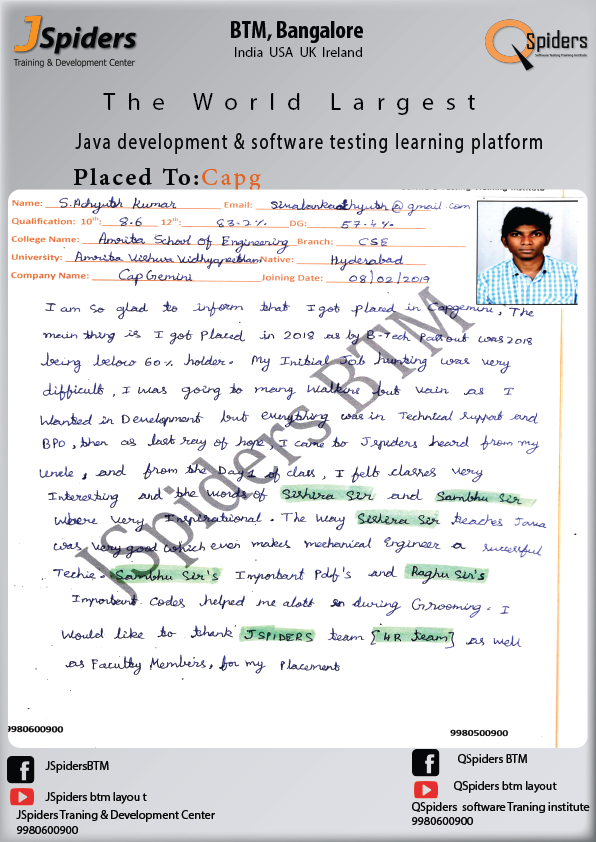 JSpiders
Training & Development Center
BTM, Bangalore
India USA UK Ireland
QSpiders
Software Testing Training Institute
The World Largest
Java development & software testing learning platform
Placed To:Capg
Name: S.Achyuth Kumar Email: @gmail.com
Qualification: 10th: 8.6 12th: 83.2% DG: 57.4%
College Name: Amrita School Of Engineering Branch: CSE
University: Amrita Vishwa Vidhyapeetham Native: Hyderabad
Company Name: CapGemini Joining Date: 08/02/2019
I am so glad to inform that I got placed in Capgemini, The
main thing is I got Placed in 2018 as by B-Tech Passout was 2018
being below 60% holder. My Initial Job hunting was very
difficult, I was going to many Walkins but vain as I
Wanted in Development but everything was in Technical Support and
BPO, then as last ray of hope, I came to Jspiders heard from my
Uncle, and from the Day1 of class, I felt classes very
Interesting and the words of Sishira Sir and Sambhu Sir
where very Inspirational. The way Sishira Sir teaches Java
was very good which even makes mechanical Engineer a successful
Techie. Sambhu Sir's Important Pdf's and Raghu Sir's
Important codes helped me alott during Grooming. I
Would like to thank JSPIDERS team [HR team] as well
as Faculty Members, for my Placement
JSpiders BTM
9980600900 9980500900
JSpidersBTM
JSpiders btm layou t
JSpiders Traning & Development Center
9980600900
QSpiders BTM
QSpiders btm layout
QSpiders software Traning institute
9980600900